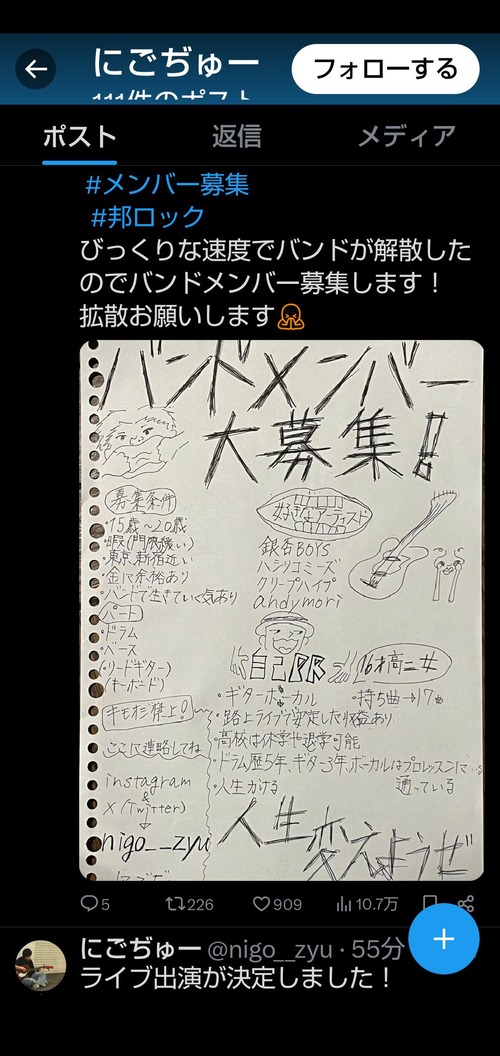 にごぢゅー
フォローする
111件のポスト
ポスト
返信
メディア
#メンバー募集
#邦ロック
びっくりな速度でバンドが解散した
のでバンドメンバー募集します！
拡散お願いします🙇
バンドメンバー
大募集!
募集条件
・15歳〜20歳
・暇(門限緩い)
・東京、新宿近い
・金に余裕あり
・バンドで生きていく気あり
パート
・ドラム
・ベース
(・リードギター)
(・キーボード)
キモオジ禁止!
ここに連絡してね
instagram
&
X (Twitter)
nigo__zyu
好きなアーティスト
銀杏BOYS
ハシリコミーズ
クリープハイプ
andymori
自己PR
16才高二女
・ギターボーカル
・持ち曲→17曲
・路上ライブで安定した収益あり
・高校は休学や退学可能
・ドラム歴5年、ギター3年、ボーカルはプロレッスンに
通っている
・人生かける
人生変えようぜ
5
226
909
10.7万
にごぢゅー @nigo__zyu · 55分
ライブ出演が決定しました！